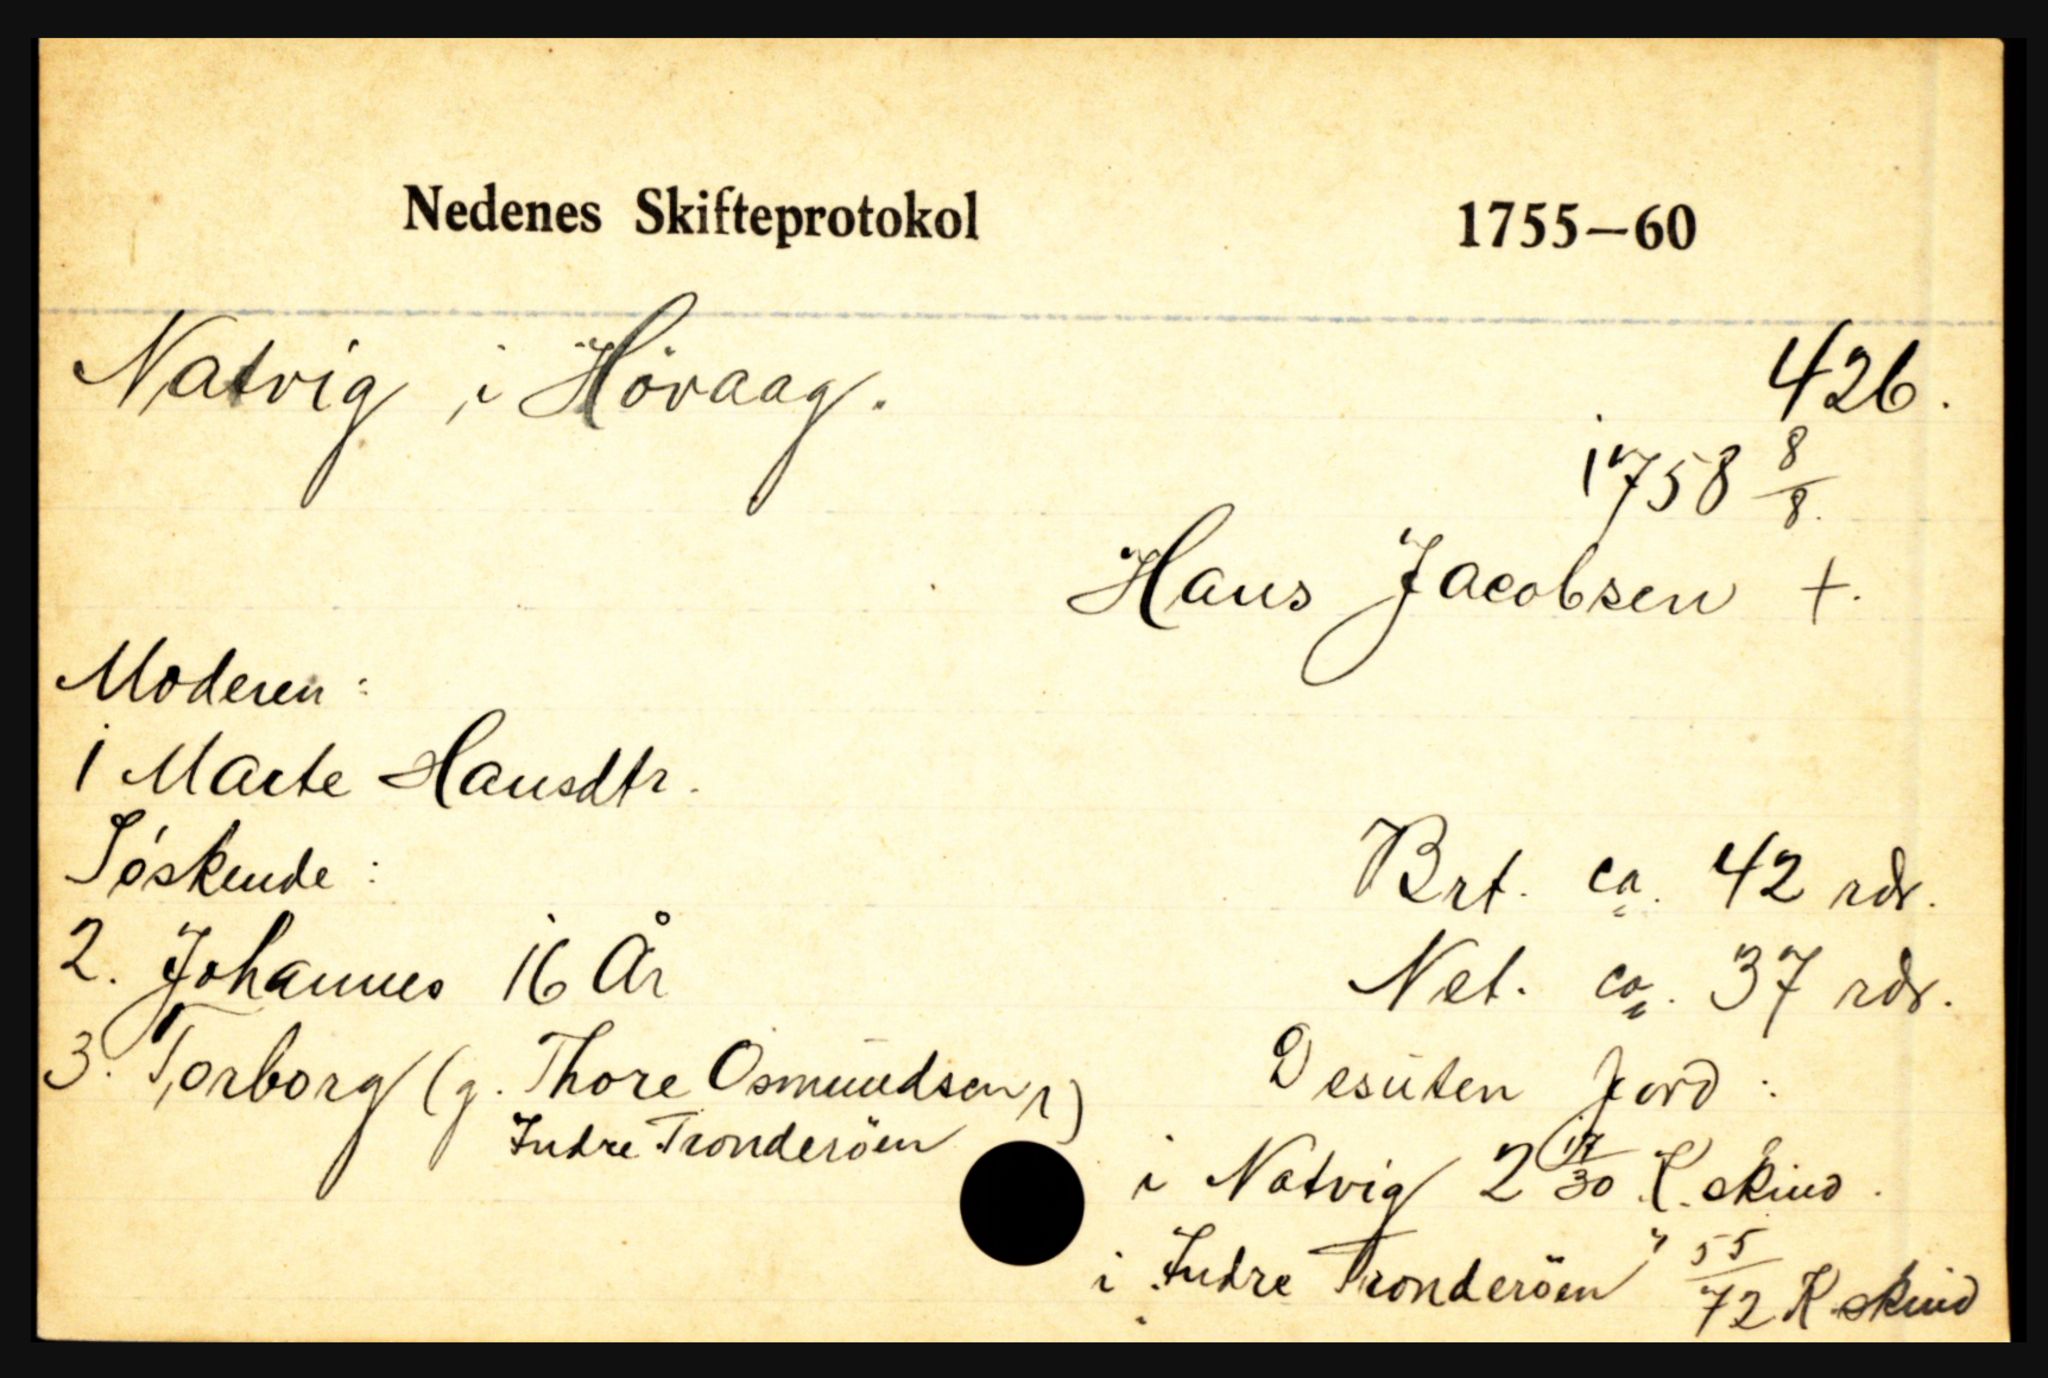 Nedenes Skifteprotokol 1755—60
Natvig i Hövaag. 426.
1758 8/8.
Hans Jacobsen †.
Moderen:
1 Marte Hansdtr.
Söskende:
2. Johannes 16 År
3. Torborg (g. Thore Osmundsen,)
Indre Tronderöen
Brt. ca. 42 rdr.
Net. ca. 37 rdr.
Desuten Jord:
i Natvig 2 17/30 K. skind.
i Indre Tronderöen " 55/72 K skind